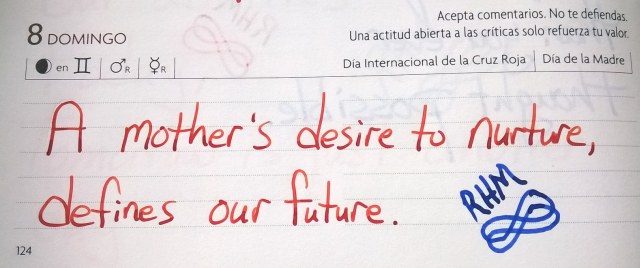 Acepta comentarios. No te defiendas.
8 DOMINGO
Una actitud abierta a las críticas solo refuerza tu valor.
en ♊ ♂R ☿R
Día Internacional de la Cruz Roja | Día de la Madre
A mother's desire to nurture,
defines our future.
RHM
124